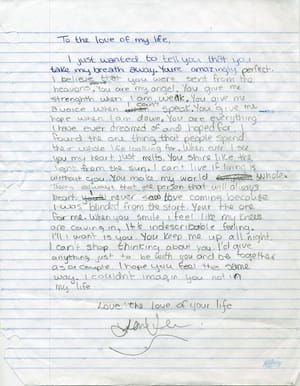 To the love of my life,
I just wanted to tell you that you
take my breath away. You're amazingly perfect.
I believe that you were sent from the
heavens, you are my angel. You give me
strenghth when I am weak, You give me
a voice when I can't speak, You give me
hope when I am down, You are everything
I have ever dreamed of and hoped for.
I found the one thing that people spend
there whole life looking for. When ever I see
you my heart just melts. You shine like the
light from the sun, I can't live if living is
without you. You make my world whole.
There always that one person that will always
heart. I never saw love coming because
I was blinded from the start. Your the one
for me. When you smile I feel like my knees
are caving in, It's indescribable feeling.
I'll I want is you. You keep me up all night.
I can't stop thinking about you I'd give
anything just to be with you and be together
as a couple. I hope you feel the same
way, I couldnt imagin you not in
my life
Love: the love of your life